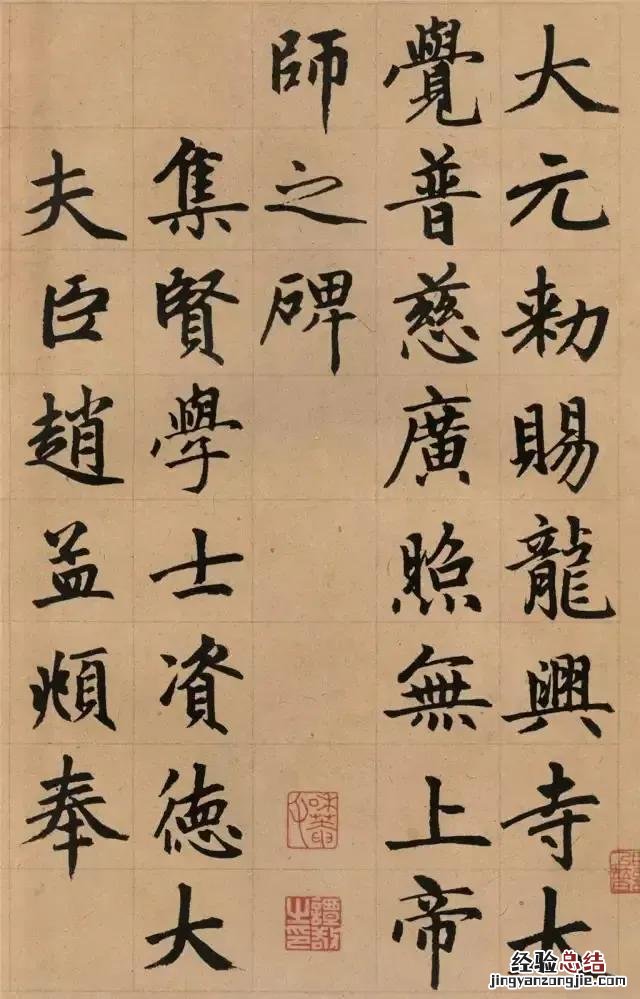 大元敕賜龍興寺大
覺普慈廣照無上帝
師之碑
集賢學士資德大
夫臣趙孟頫奉
經验总结
jingyanzongjie.com